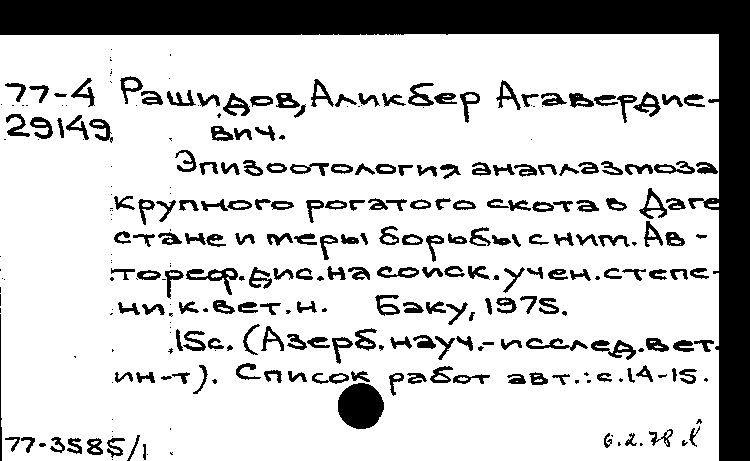 77-4 Рашидов, Аликбер Агавердие-
29149 вич.
Эпизоотология анаплазмоза
крупного рогатого скота в Даге
стане и меры борьбы с ним. Ав-
тореф. дис. на соиск. учен. степе-
ни к. вет. н. Баку, 1975.
15с. (Азерб. науч.-исслед. вет.
ин-т). Список работ авт.: с.14-15.
77-3585/1 6.2.78